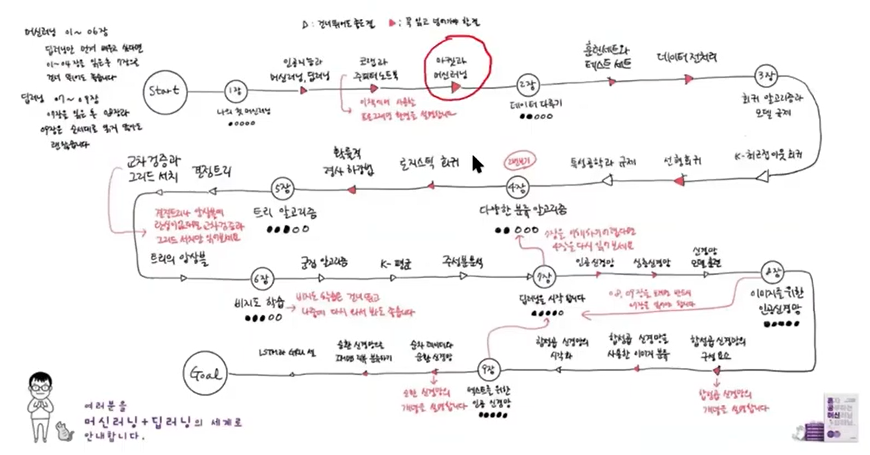 머신러닝 01~06장
딥러닝만 먼저 배우고 싶다면
01~04장을 읽은 후 7장으로
건너 뛰어도 좋습니다
딥러닝 07~09장
△: 건너뛰어도 좋은 절
▶: 꼭 읽고 넘어가야 할 절
Start
1장
나의 첫 머신러닝
인공지능과
머신러닝, 딥러닝
코랩과
주피터 노트북
이 책에서 사용할
프로그래밍 환경을 설명합니다
마켓과
머신러닝
2장
데이터 다루기
훈련 세트와
테스트 세트
데이터 전처리
3장
회귀 알고리즘과
모델 규제
K-최근접 이웃 회귀
선형 회귀
특성 공학과 규제
4장
다양한 분류 알고리즘
로지스틱 회귀
확률적
경사 하강법
5장
트리 알고리즘
결정 트리
교차 검증과
그리드 서치
트리의 앙상블
6장
비지도 학습
비지도 학습은 건너 뛰고
나중에 다시 와서 봐도 좋습니다
군집 알고리즘
K-평균
주성분 분석
7장
딥러닝을 시작합니다
7장을 이해하기 어렵다면
4장을 다시 읽어 보세요
인공 신경망
심층 신경망
신경망
모델 훈련
8장
이미지를 위한
인공 신경망
합성곱 신경망의
구성 요소
합성곱 신경망의
개념을 설명합니다
합성곱 신경망을
사용한 이미지 분류
합성곱 신경망의
시각화
9장
텍스트를 위한
인공 신경망
순차 데이터와
순환 신경망
순환 신경망의
개념을 설명합니다
순환 신경망으로
LSTM과 GRU 셀
Goal
여러분을
머신러닝+딥러닝의 세계로
안내합니다.